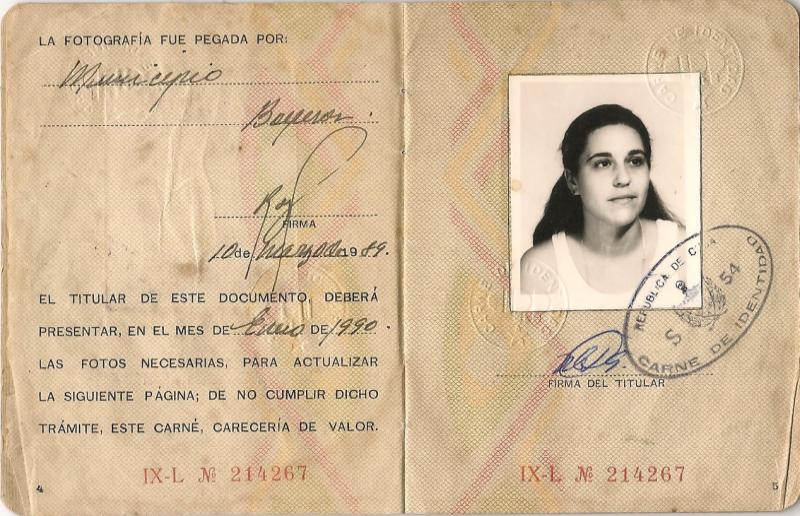 LA FOTOGRAFÍA FUE PEGADA POR:
Municipio
Boyeros.
FIRMA
10 de marzo de 1989.
EL TITULAR DE ESTE DOCUMENTO, DEBERÁ
PRESENTAR, EN EL MES DE Enero DE 1990.
LAS FOTOS NECESARIAS, PARA ACTUALIZAR
LA SIGUIENTE PÁGINA; DE NO CUMPLIR DICHO
TRÁMITE, ESTE CARNÉ, CARECERÍA DE VALOR.
IX-L № 214267
4
CARNE DE IDENTIDAD
REPUBLICA DE CUBA
S 54
CARNE DE IDENTIDAD
FIRMA DEL TITULAR
IX-L № 214267
5